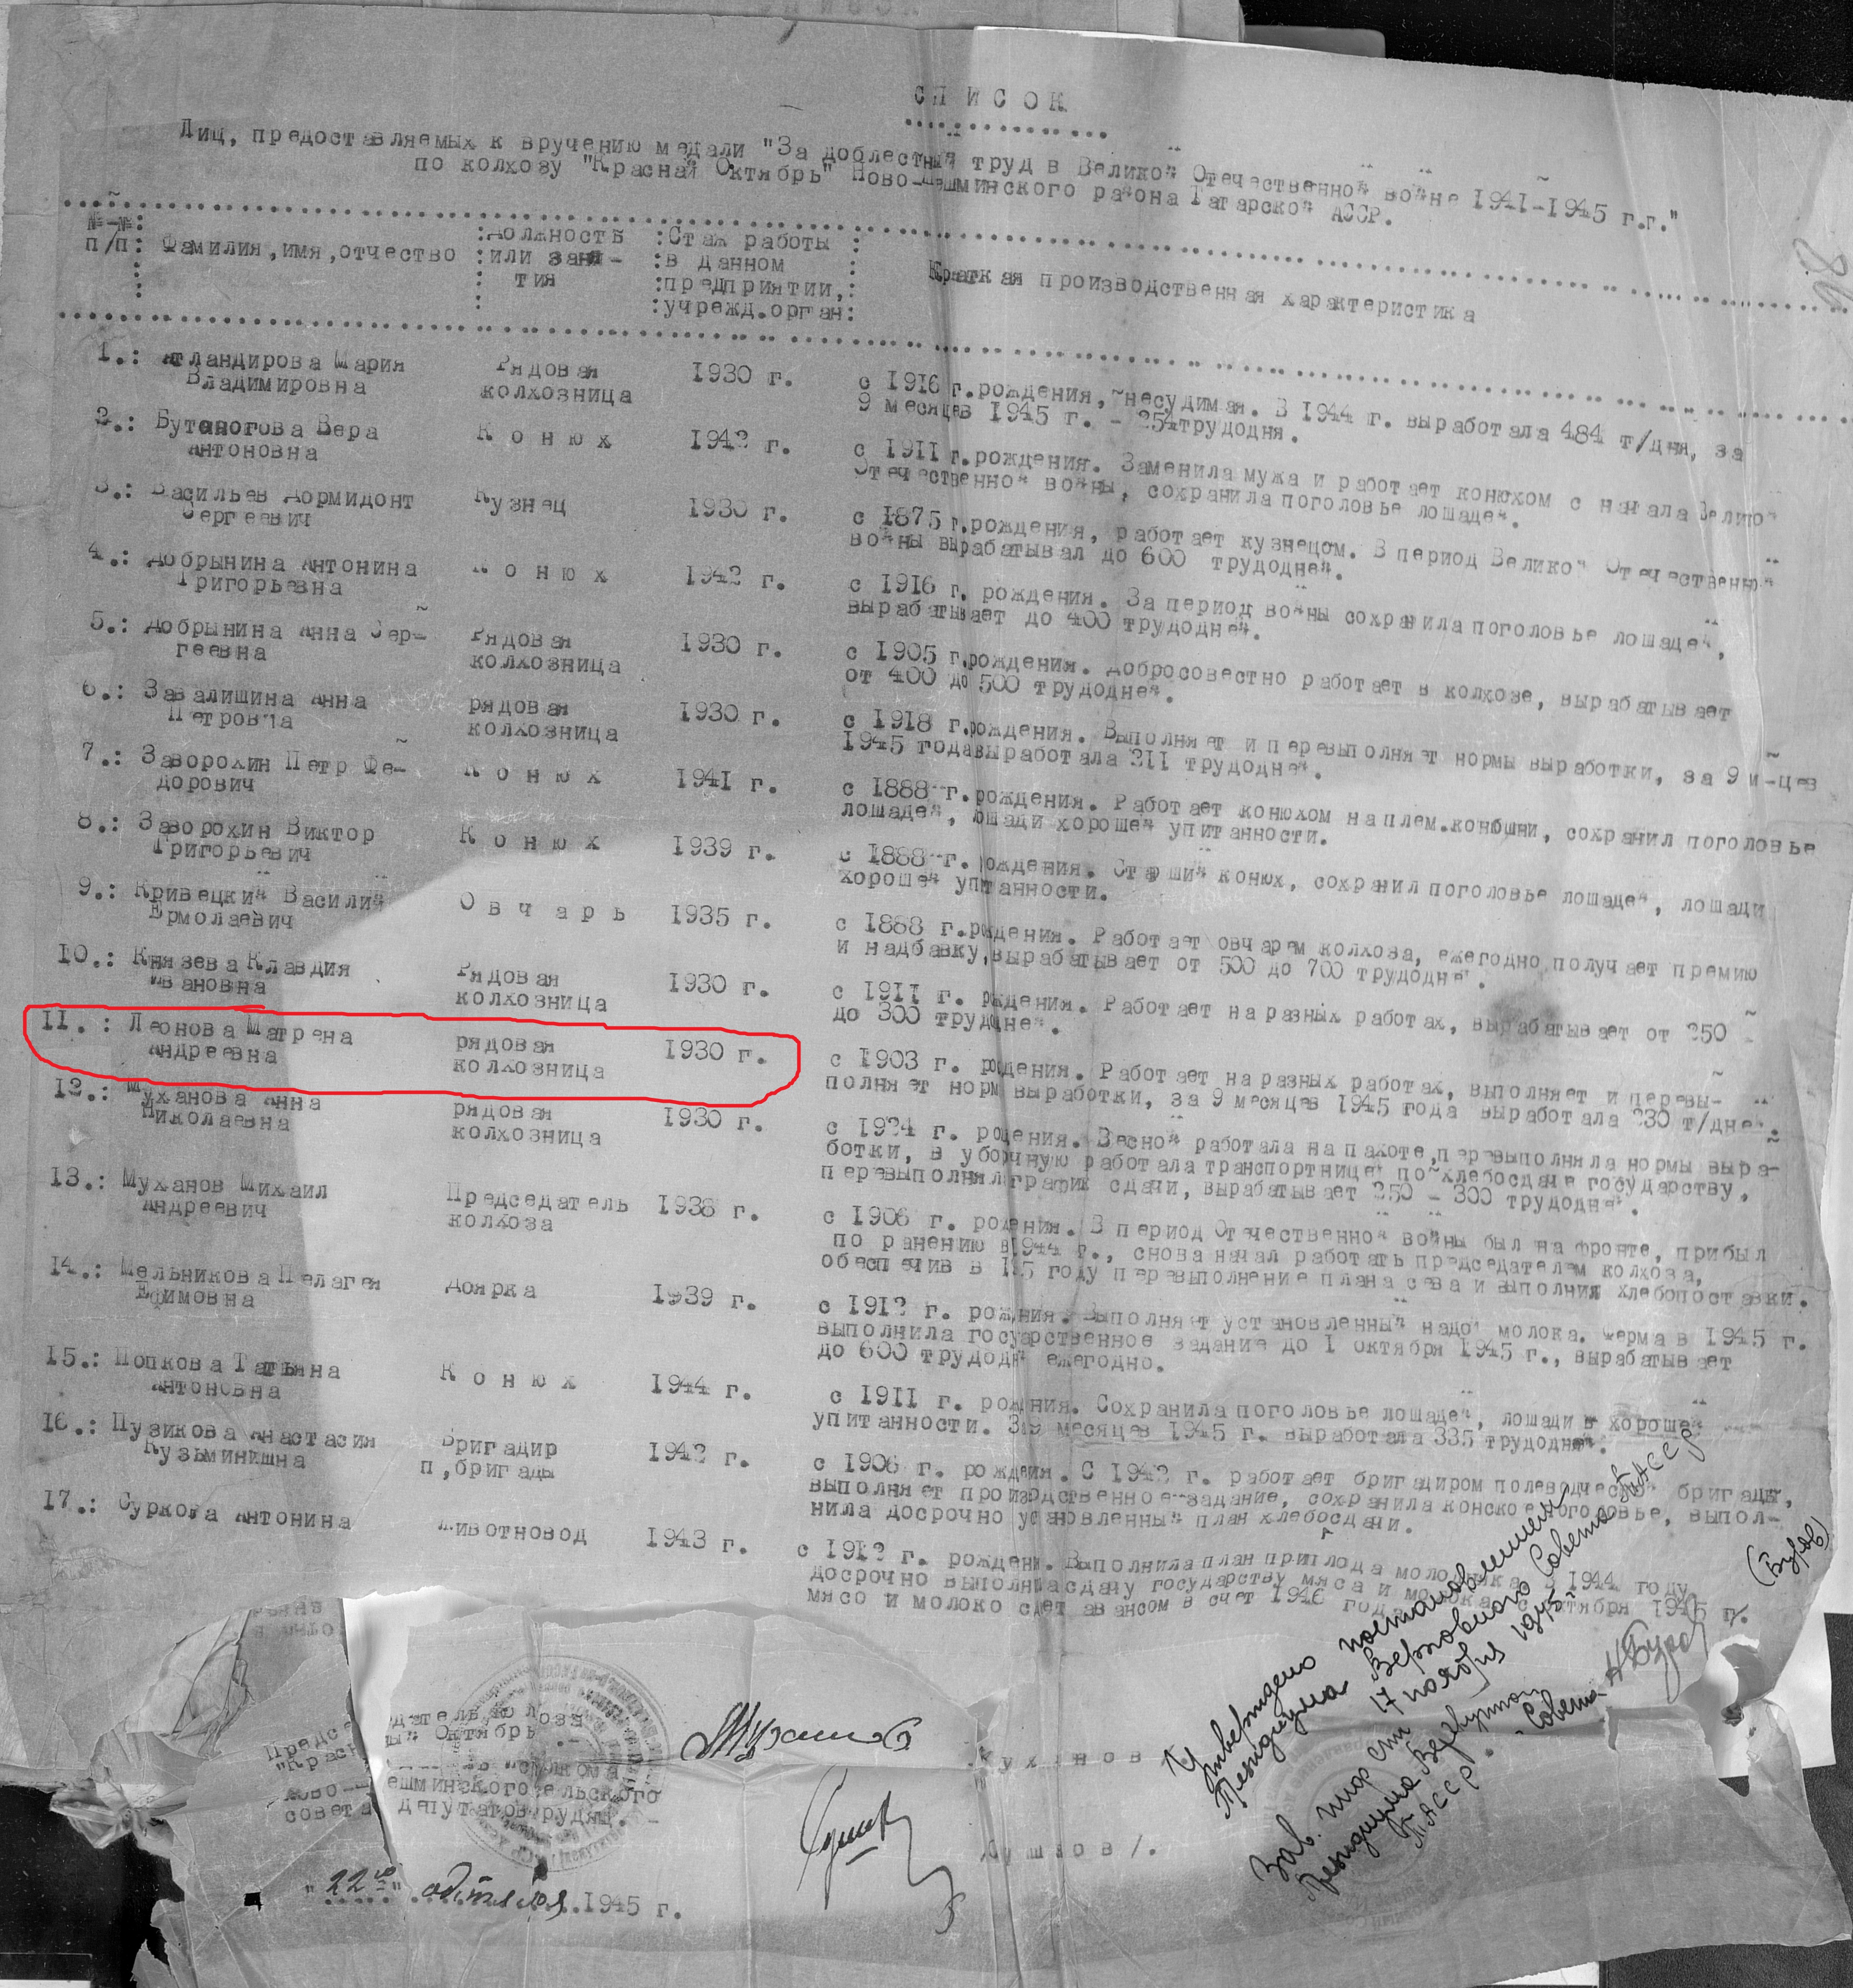 СПИСОК
Лиц, предоставляемых к вручению медали "За доблестный труд в Великой Отечественной войне 1941-1945 г.г."
по колхозу "Красный Октябрь" Ново-Шешминского района Татарской АССР.
№-№ п/п: Фамилия,имя,отчество :Должность или заня-тия :Стаж работы в данном предприятии, учрежд.орган: Краткая производственная характеристика
1.: Атландирова Мария Рядовая 1930 г. с 1916 г.рождения, несудимая. В 1944 г. выработала 484 т/дня, за
Владимировна колхозница 9 месяцев 1945 г. - 254трудодня.
2.: Бутаногова Вера Конюх 1942 г. с 1911 г.рождения. Заменила мужа и работает конюхом с начала Великой
Антоновна Отечественной войны, сохранила поголовье лошадей.
3.: Васильев Дормидонт Кузнец 1930 г. с 1875 г.рождения, работает кузнецом. В период Великой Отечественной
Сергеевич войны вырабатывал до 600 трудодней.
4.: Добрынина Антонина Конюх 1942 г. с 1916 г. рождения. За период войны сохранила поголовье лошадей,
Григорьевна вырабатывает до 400 трудодней.
5.: Добрынина Анна Сер- Рядовая 1930 г. с 1905 г.рождения. Добросовестно работает в колхозе, вырабатывает
геевна колхозница от 400 до 500 трудодней.
6.: Завалишина Анна рядовая 1930 г. с 1918 г.рождения. Выполняет и перевыполняет нормы выработки, за 9 м-цев
Петровна колхозница 1945 годавыработала 211 трудодней.
7.: Заворохин Петр Фе- Конюх 1941 г. с 1888 г.рождения. Работает конюхом на плем.конюшни, сохранил поголовье
дорович лошадей, лошади хорошей упитанности.
8.: Заворохин Виктор Конюх 1939 г. с 1888 г. рождения. Старший конюх, сохранил поголовье лошадей, лошади
Григорьевич хорошей упитанности.
9.: Кривецкий Василий Овчарь 1935 г. с 1888 г.рождения. Работает овчарем колхоза, ежегодно получает премию
Ермолаевич и надбавку,вырабатывает от 500 до 700 трудодней.
10.: Князева Клавдия Рядовая 1930 г. с 1911 г. рождения. Работает на разных работах, вырабатывает от 250 -
Ивановна колхозница до 300 трудодней.
11.: Леонова Матрена рядовая 1930 г. с 1903 г. рождения. Работает на разных работах, выполняет и перевы-
Андреевна колхозница полняет норм выработки, за 9 месяцев 1945 года выработала 230 т/дней.
12.: Муханова Анна рядовая 1930 г. с 1924 г. рождения. Весной работала на пахоте,перевыполняла нормы выра-
Николаевна колхозница ботки, в уборочную работала транспортницей по хлебосдаче государству,
перевыполнял график сдачи, вырабатывает 250 - 300 трудодней.
13.: Муханов Михаил Председатель 1938 г. с 1906 г. рождения. В период Отечественной войны был на фронте, прибыл
Андреевич колхоза по ранению в 1944 г., снова начал работать председателем колхоза,
обеспечив в 1945 году перевыполнение плана сева и выполнил хлебопоставки.
14.: Мельникова Пелагея Доярка 1939 г. с 1912 г. рождения. Выполняет установленный надой молока. Ферма в 1945 г.
Ефимовна выполнила государственное задание до 1 октября 1945 г., вырабатывает
до 600 трудодней ежегодно.
15.: Попкова Татьяна Конюх 1944 г. с 1911 г. рождения. Сохранила поголовье лошадей, лошади в хорошей
Антоновна упитанности. За 9 месяцев 1945 г. выработала 335 трудодней.
16.: Пузикова Анастасия Бригадир 1942 г. с 1906 г. рождения. С 1942 г. работает бригадиром полеводческой бригады,
Кузьминишна п,бригады выполняет производственное задание, сохранила конское поголовье, выпол-
нила досрочно установленный план хлебосдачи.
17.: Суркова Антонина Животновод 1943 г. с 1912 г. рождени. Выполнила план приплода молодняка в 1944 году,
досрочно выполнила сдачу государству мяса и молока, с октября 1945 г.
мясо и молоко сдет авансом в счет 1946 года.
Председатель колхоза
"Красный Октябрь" - Муханов
Ново-Шешминского сельского
совета депутатов трудящ. - Сушков/.
"22го" октября 1945 г.
Утверждено постановлением
Президиума Верховного Совета ТАССР
от 17 ноября 1945 г.
Президиума Верховного Совета
ТАССР
(Буров)